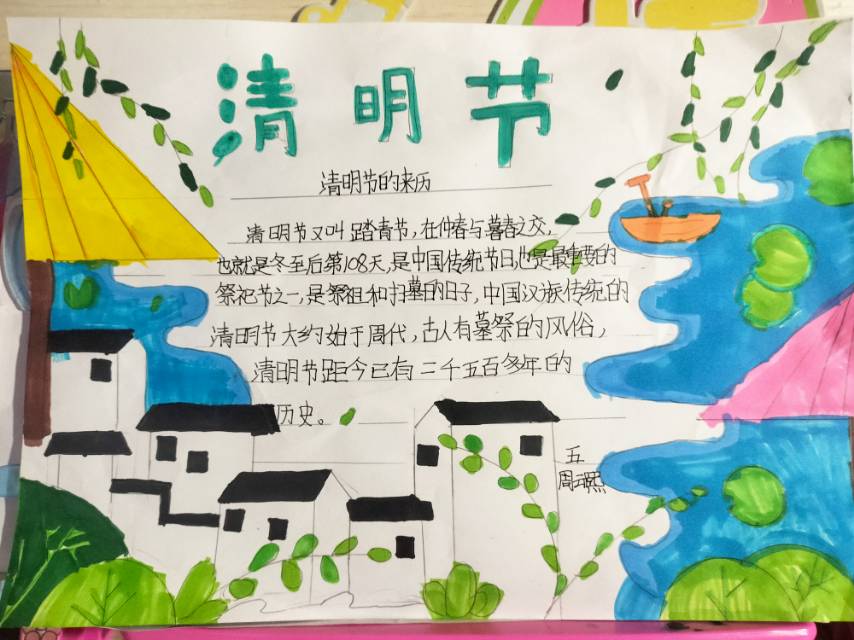 清明节
清明节的来历
清明节又叫踏青节,在仲春与暮春之交,
也就是冬至后第108天,是中国传统节日,也是最重要的
祭祀节之一,是祭祖和扫墓的日子,中国汉族传统的
清明节大约始于周代,古人有墓祭的风俗,
清明节距今已有二千五百多年的
历史。
五
周 熙